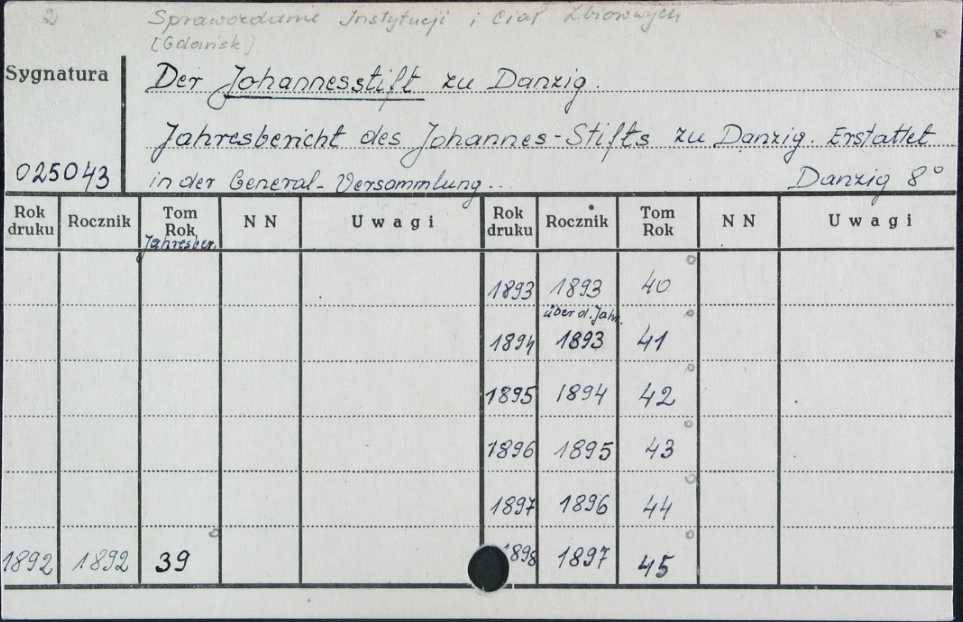 2 Sprawozdanie Instytucji i Ciał Zbiorowych
[Gdańsk]
Sygnatura
Der Johannesstift zu Danzig.
Jahresbericht des Johannes-Stifts zu Danzig. Erstattet
025043
in der General-Versammlung... Danzig 8°
Rok druku Rocznik Tom Rok NN Uwagi Rok druku Rocznik Tom Rok NN Uwagi
Jahresber.
1893 1893 40
über d. Jahr.
1894 1893 41
1895 1894 42
1896 1895 43
1897 1896 44
1892 1892 39 1898 1897 45